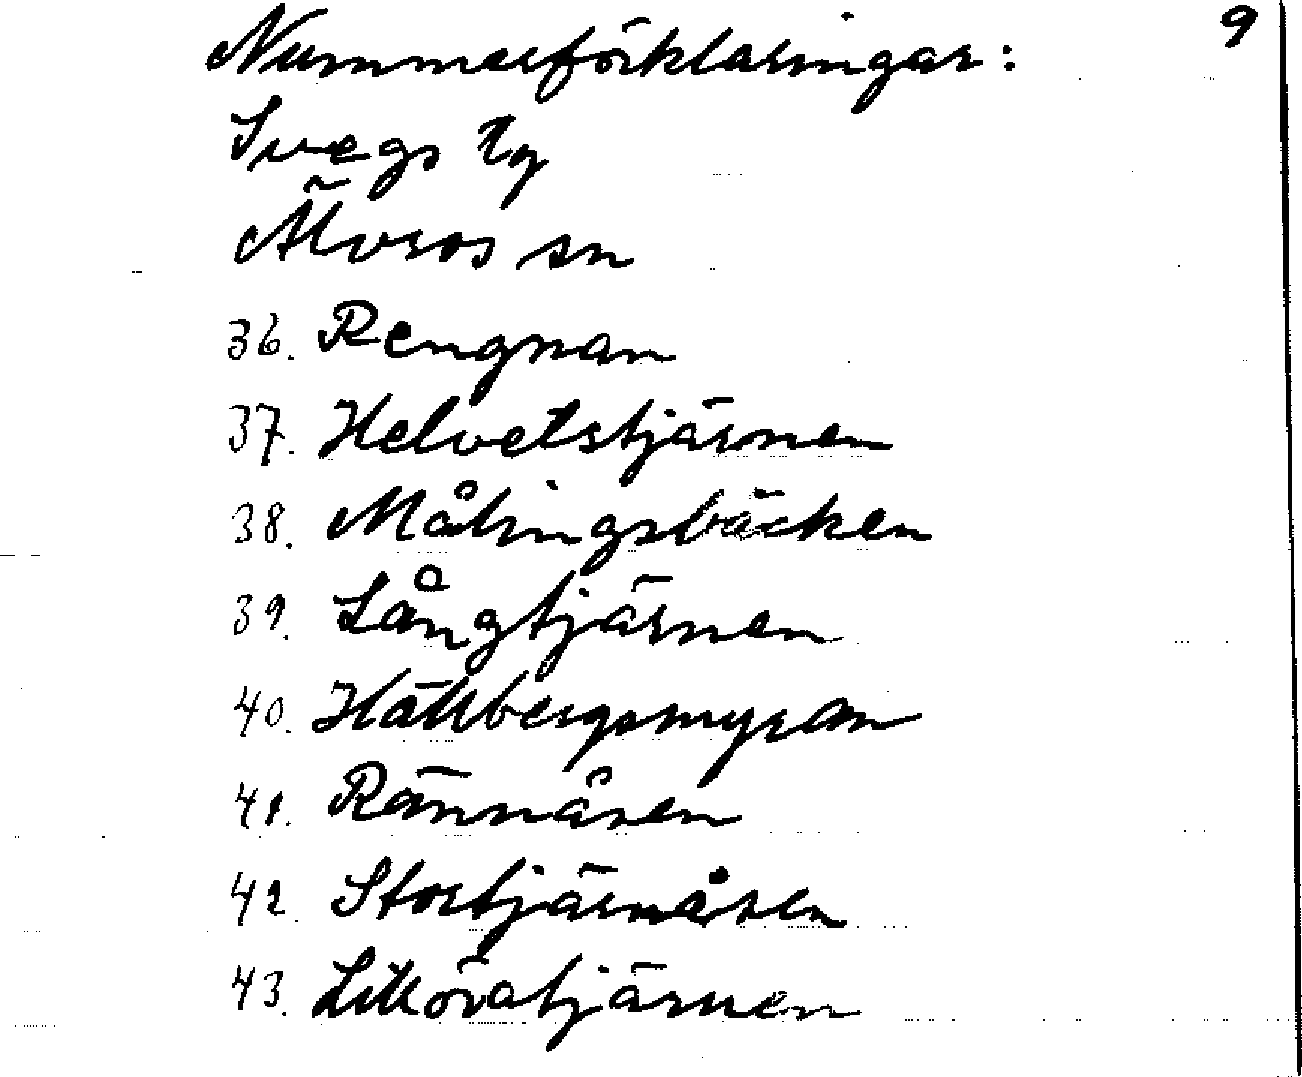 9
Nummerförklaringar:
Svegs tg
Älvros sn
36. Rengnan
37. Helvetstjärnen
38. Målingsbäcken
39. Långtjärnen
40. Hällbergsmyran
41. Rännåsen
42. Stortjärnåsen
43.